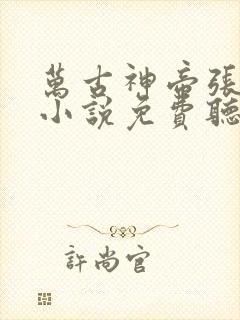 萬古神帝張
小說免費聽
許尚官